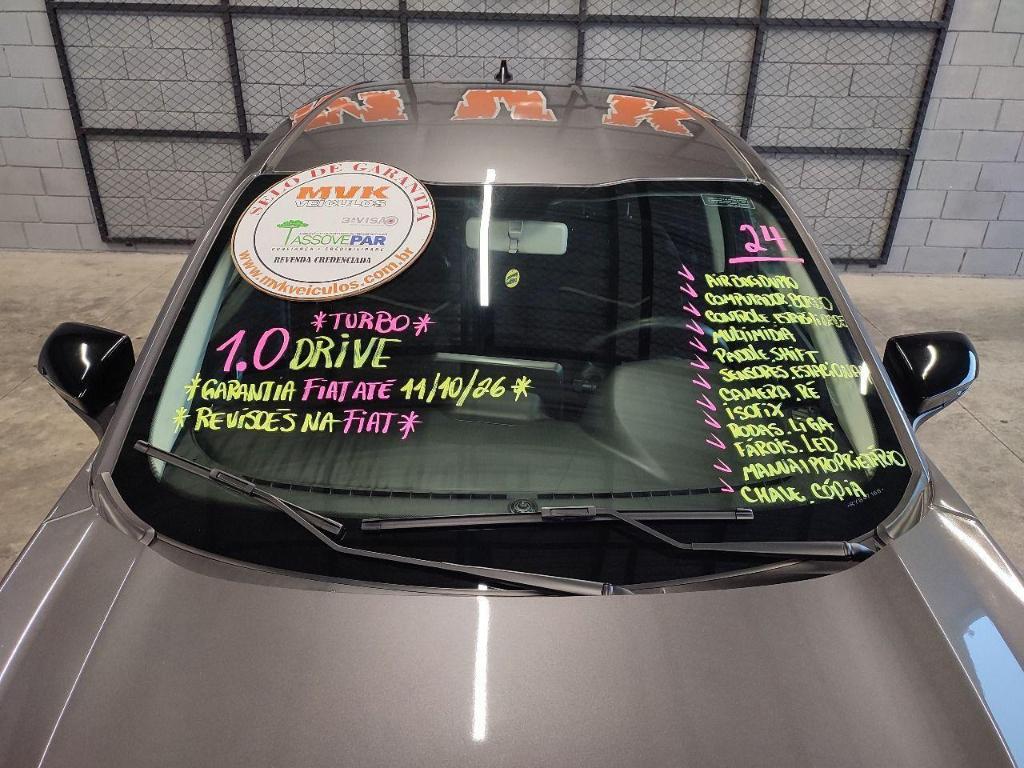 SELO DE GARANTIA
MVK
VEICULOS
3ªVISÃO
ASSOVEPAR
CONFIANÇA E CREDIBILIDADE
REVENDA CREDENCIADA
www.mvkveiculos.com.br
*TURBO*
1.0 DRIVE
*GARANTIA FIAT ATE 11/10/26*
*REVISÕES NA FIAT*
24
AIR BAG DUPLO
COMPUTADOR BORDO
CONTROLE ESTABILIDADE
MULTIMÍDIA
PADDLE SHIFT
SENSORES. ESTACIONA
CAMERA RE
ISOFIX
RODAS. LIGA
FARÓIS. LED
MANUAL PROPRIETÁRIO
CHAVE CÓPIA